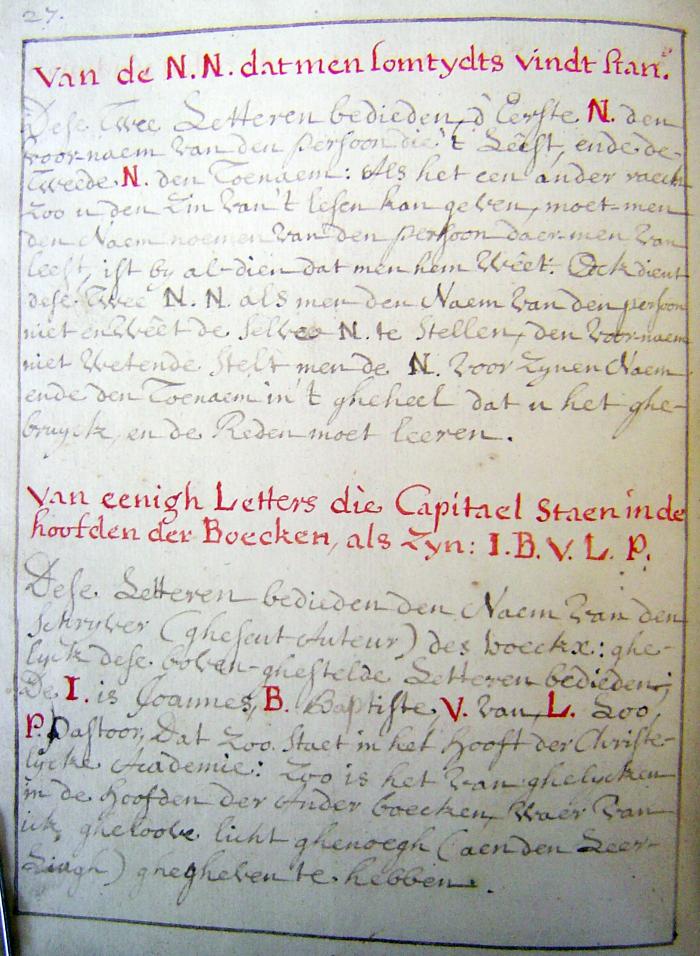 27.
Van de N.N. datmen somtydts vindt stan.
Dese twee Letteren bedieden, d'Eerste N. den
voor-naem van den persoon die 't Leest, ende de
Tweede N. den Toenaem: Als het een ander raeckt
Zoo u den Zin van't lesen kan geven, moet-men
den Naem noemen van den persoon daer-men van
leest, ist by al-dien dat men hem Weêt. Oock dient
dese twee N.N. als men den Naem van den persoon
niet en Weêt de selve N. te stellen, den voornaem
niet Wetende stelt men de N. voor Zynen Naem
ende den Toenaem in't gheheel dat u het ghe-
bruyck, en de Reden moet leeren.
Van eenigh Letters die Capitael Staen in de
hoofden der Boecken, als zyn: I.B.V.L.P.
Dese Letteren bedieden den Naem van den
schryver (gheseut Auteur) des boeckx: ghe-
lyck dese boven-ghestelde Letteren bedieden;
De I. is Joannes, B. Baptiste, V. van, L. Loo,
P. Pastoor, Dat Zoo staet in het hooft der Christe-
lycke Academie: Zoo is het van ghelycken
in de hoofden der Ander boecken, Waer van
ick gheloove licht ghenoegh (aen den Leer-
Lingh) ghegheven te hebben.